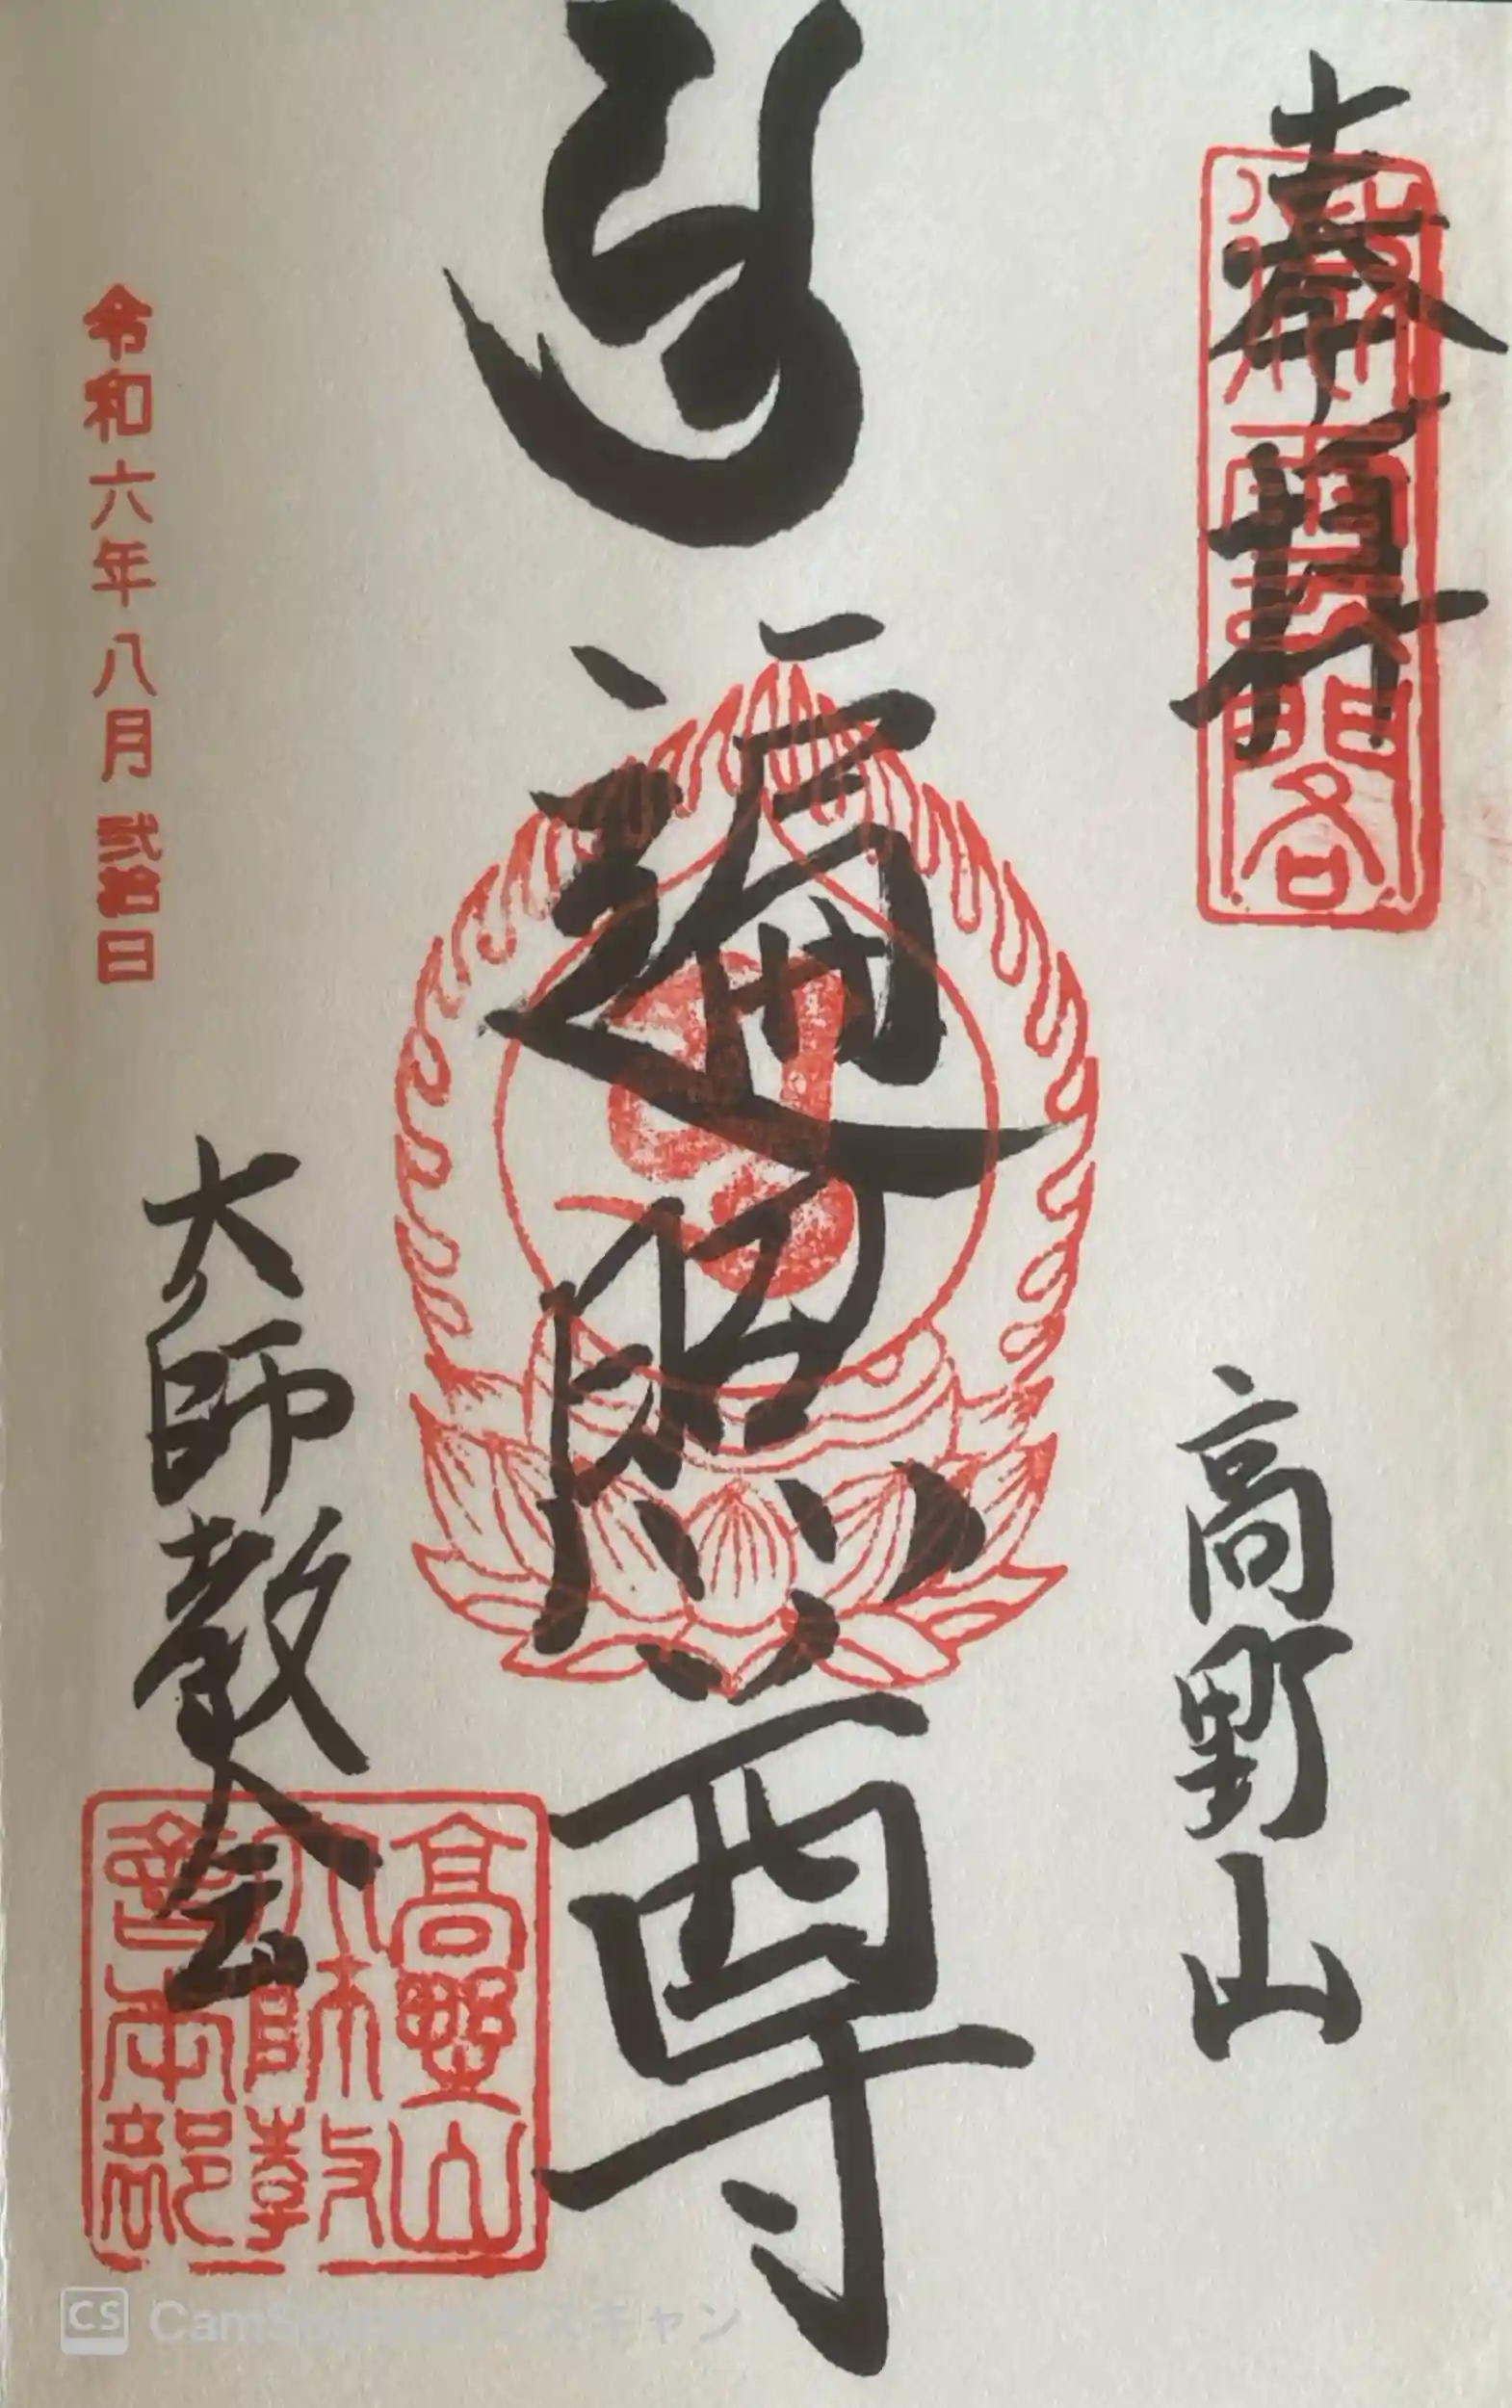 奉拝
高野山
遍照尊
令和六年八月弐拾日
大師教会
高野山
大師教
会本部
CS CamS
スキャン